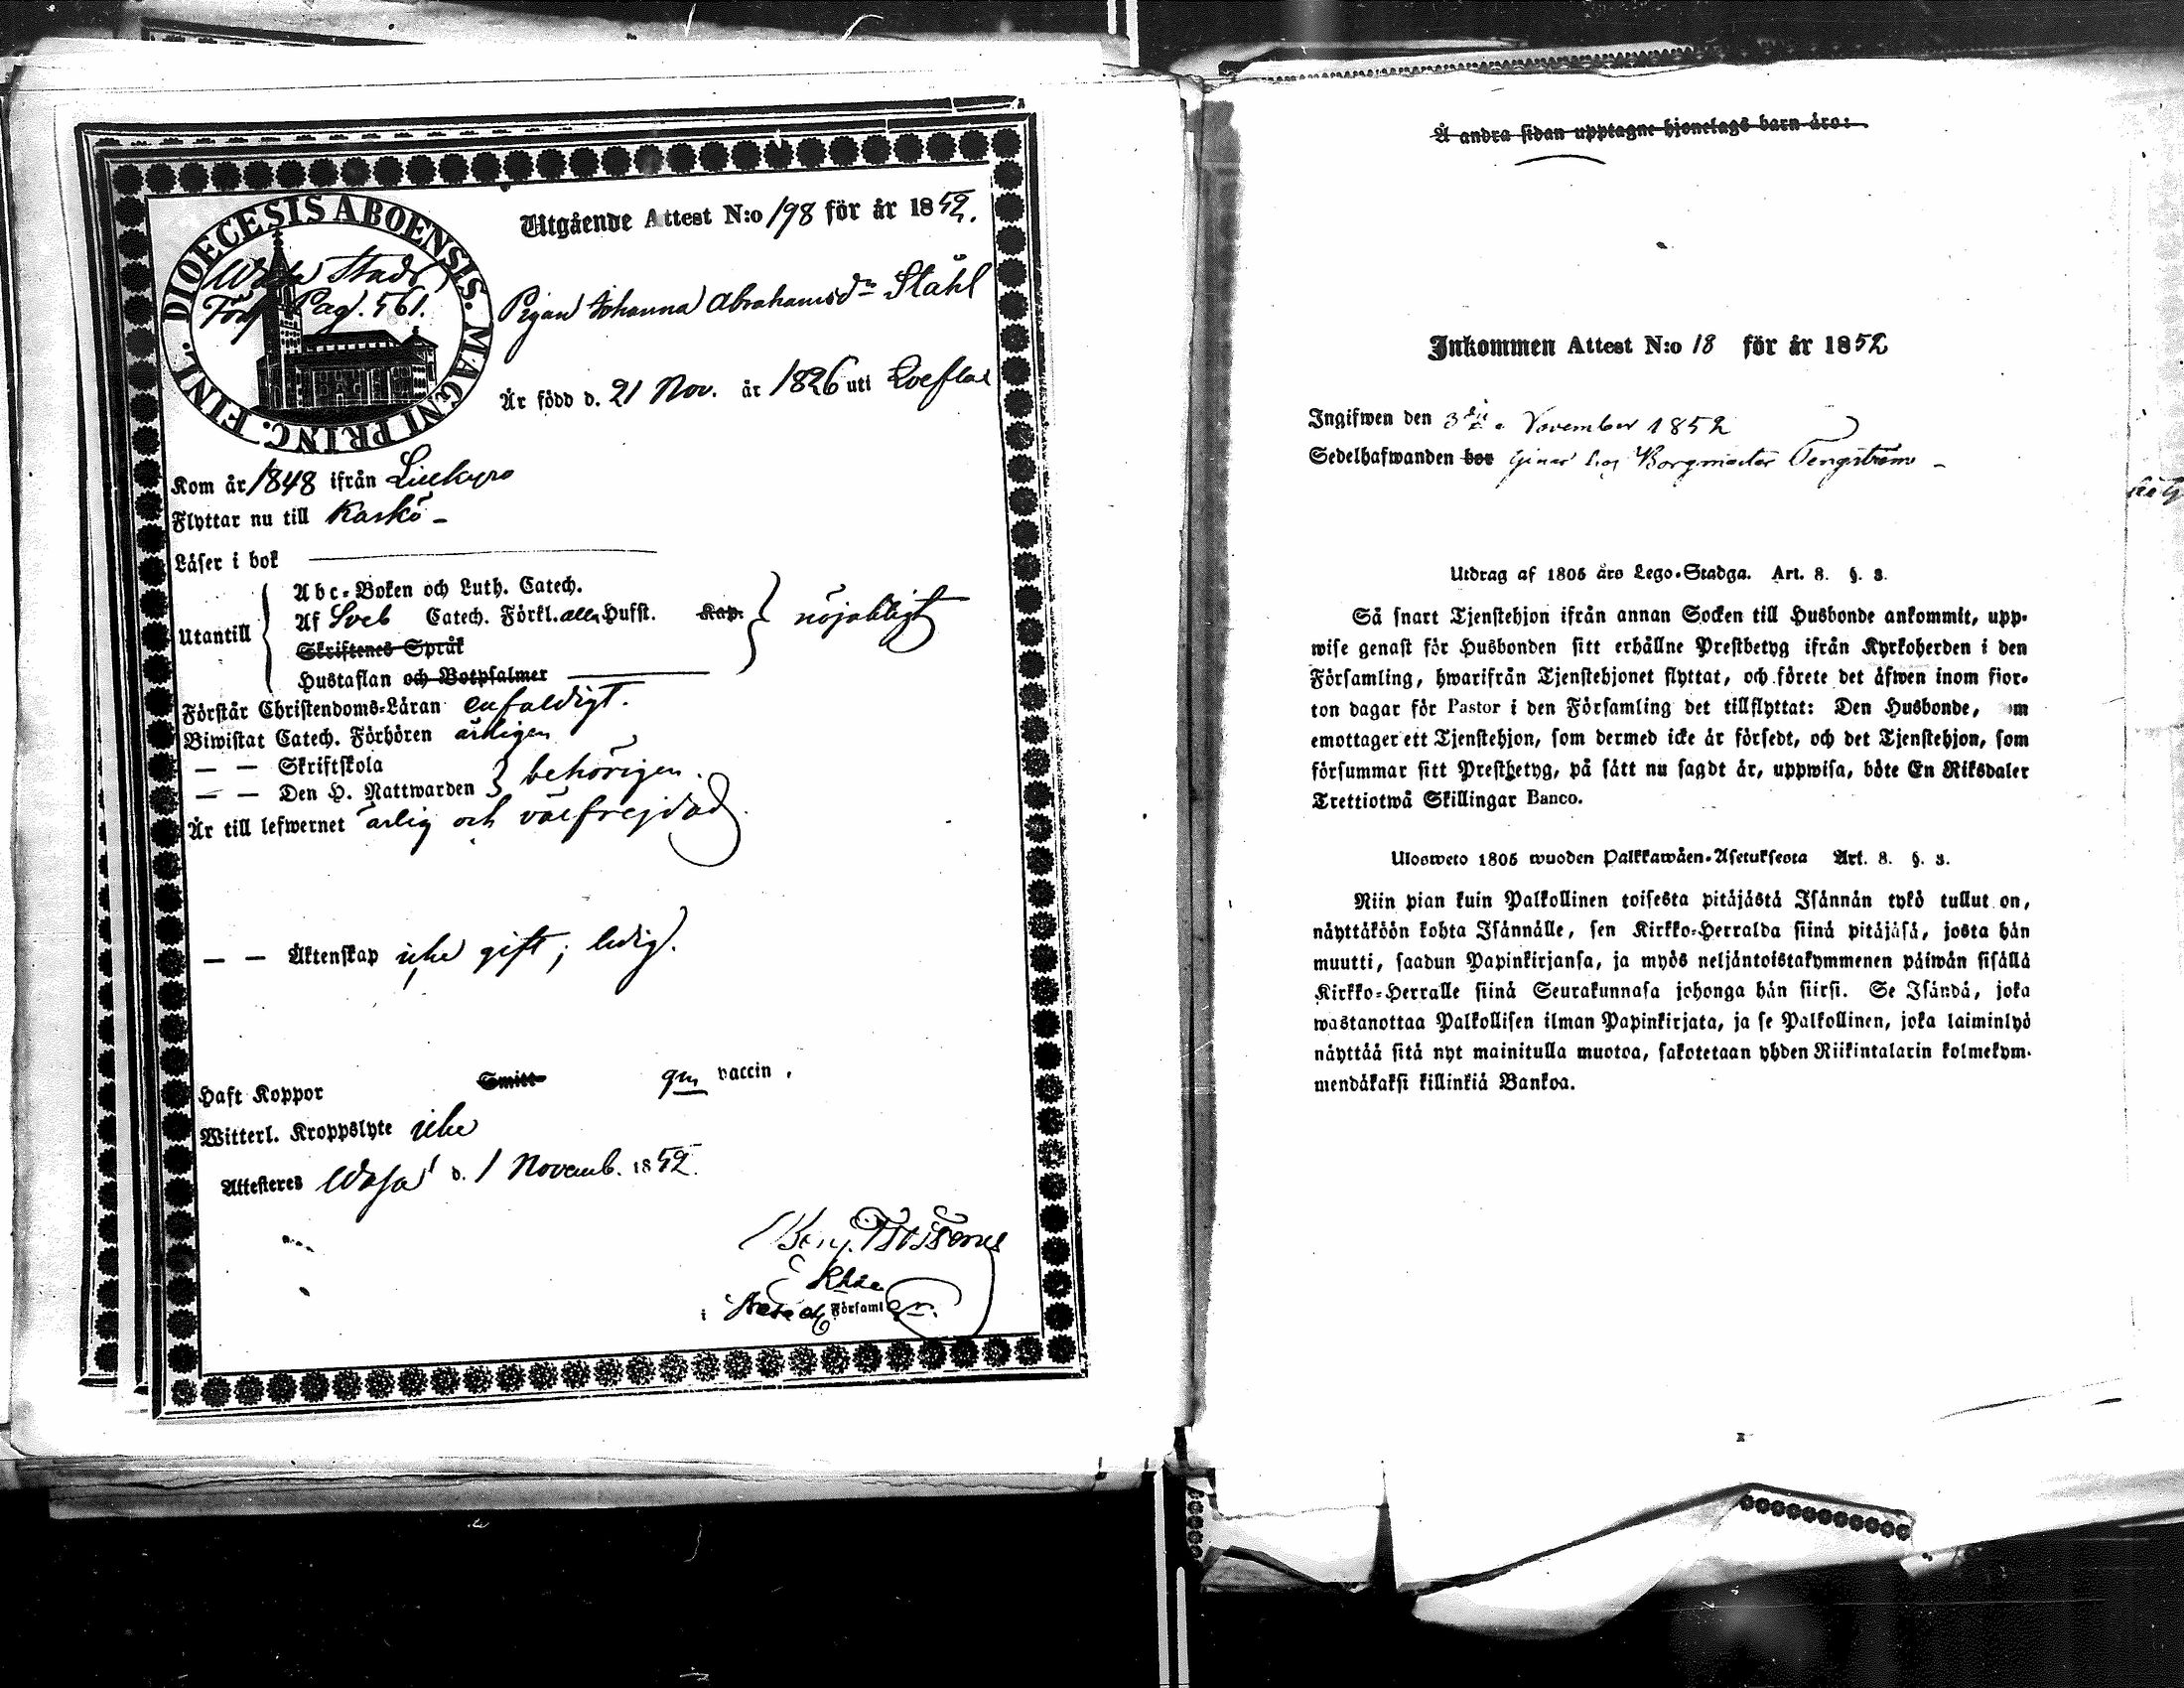 DIOECESIS ABOENSIS. MAGNI PRINC. FINL.
Wasa Stads
Förs. Pag. 561.
Utgående Attest N:o 198 för år 1852.
Pigan Johanna Abrahamsdr Ståhl
Är född d. 21 Nov. år 1826 uti
Kom år 1848 ifrån
Flyttar nu till Kaskö –
Läser i bok
Utantill
Abc-Boken och Luth. Catech.
Af Sveb Catech. Förkl. alla Hufst. Kap. nöjaktigt
Skriftenes Språk
Hustaflan och Botpsalmer
Förstår Christendoms-Läran enfaldigt.
Biwistat Catech. Förhören årligen
— — Skriftskola
— — Den H. Nattwarden behörigen.
Är till lefwernet ärlig och välfrejdad
— — Äktenskap icke gift; ledig.
Haft Koppor Smitt gm vaccin.
Witterl. Kroppslyte icke
Attesteres Wasa d. 1 Novemb. 1852.
Khde
i Församl
Å andra sidan upptagne hjonelags barn äro:
Inkommen Attest N:o 18 för år 1852
Ingifwen den 3 November 1852
Sedelhafwanden bor tjenar hos Borgmästar Tengström –
Utdrag af 1805 års Lego-Stadga. Art. 8. §. 3.
Så snart Tjenstehjon ifrån annan Socken till Husbonde ankommit, upp-
wise genast för Husbonden sitt erhållne Prestbetyg ifrån Kyrkoherden i den
Församling, hwarifrån Tjenstehjonet flyttat, och förete det äfwen inom fjor-
ton dagar för Pastor i den Församling det tillflyttat: Den Husbonde, m
emottager ett Tjenstehjon, som dermed icke är försedt, och det Tjenstehjon, som
försummar sitt Prestbetyg, på sätt nu sagdt är, uppwisa, böte En Riksdaler
Trettiotwå Skillingar Banco.
Ulosweto 1805 wuoden Palkkawäen-Asetuksesta Art. 8. §. 3.
Niin pian kuin Palkollinen toisesta pitäjästä Isännän tykö tullut on,
näyttäköön kohta Isännälle, sen Kirkko-Herralda siinä pitäjäsä, josta hän
muutti, saadun Papinkirjansa, ja myös neljäntoistakymmenen päiwän sisällä
Kirkko-Herralle siinä Seurakunnasa johonga hän siirsi. Se Isändä, joka
wastanottaa Palkollisen ilman Papinkirjata, ja se Palkollinen, joka laiminlyö
näyttää sitä nyt mainitulla muotoa, sakotetaan yhden Riikintalarin kolmekym-
mendäkaksi killinkiä Bankoa.